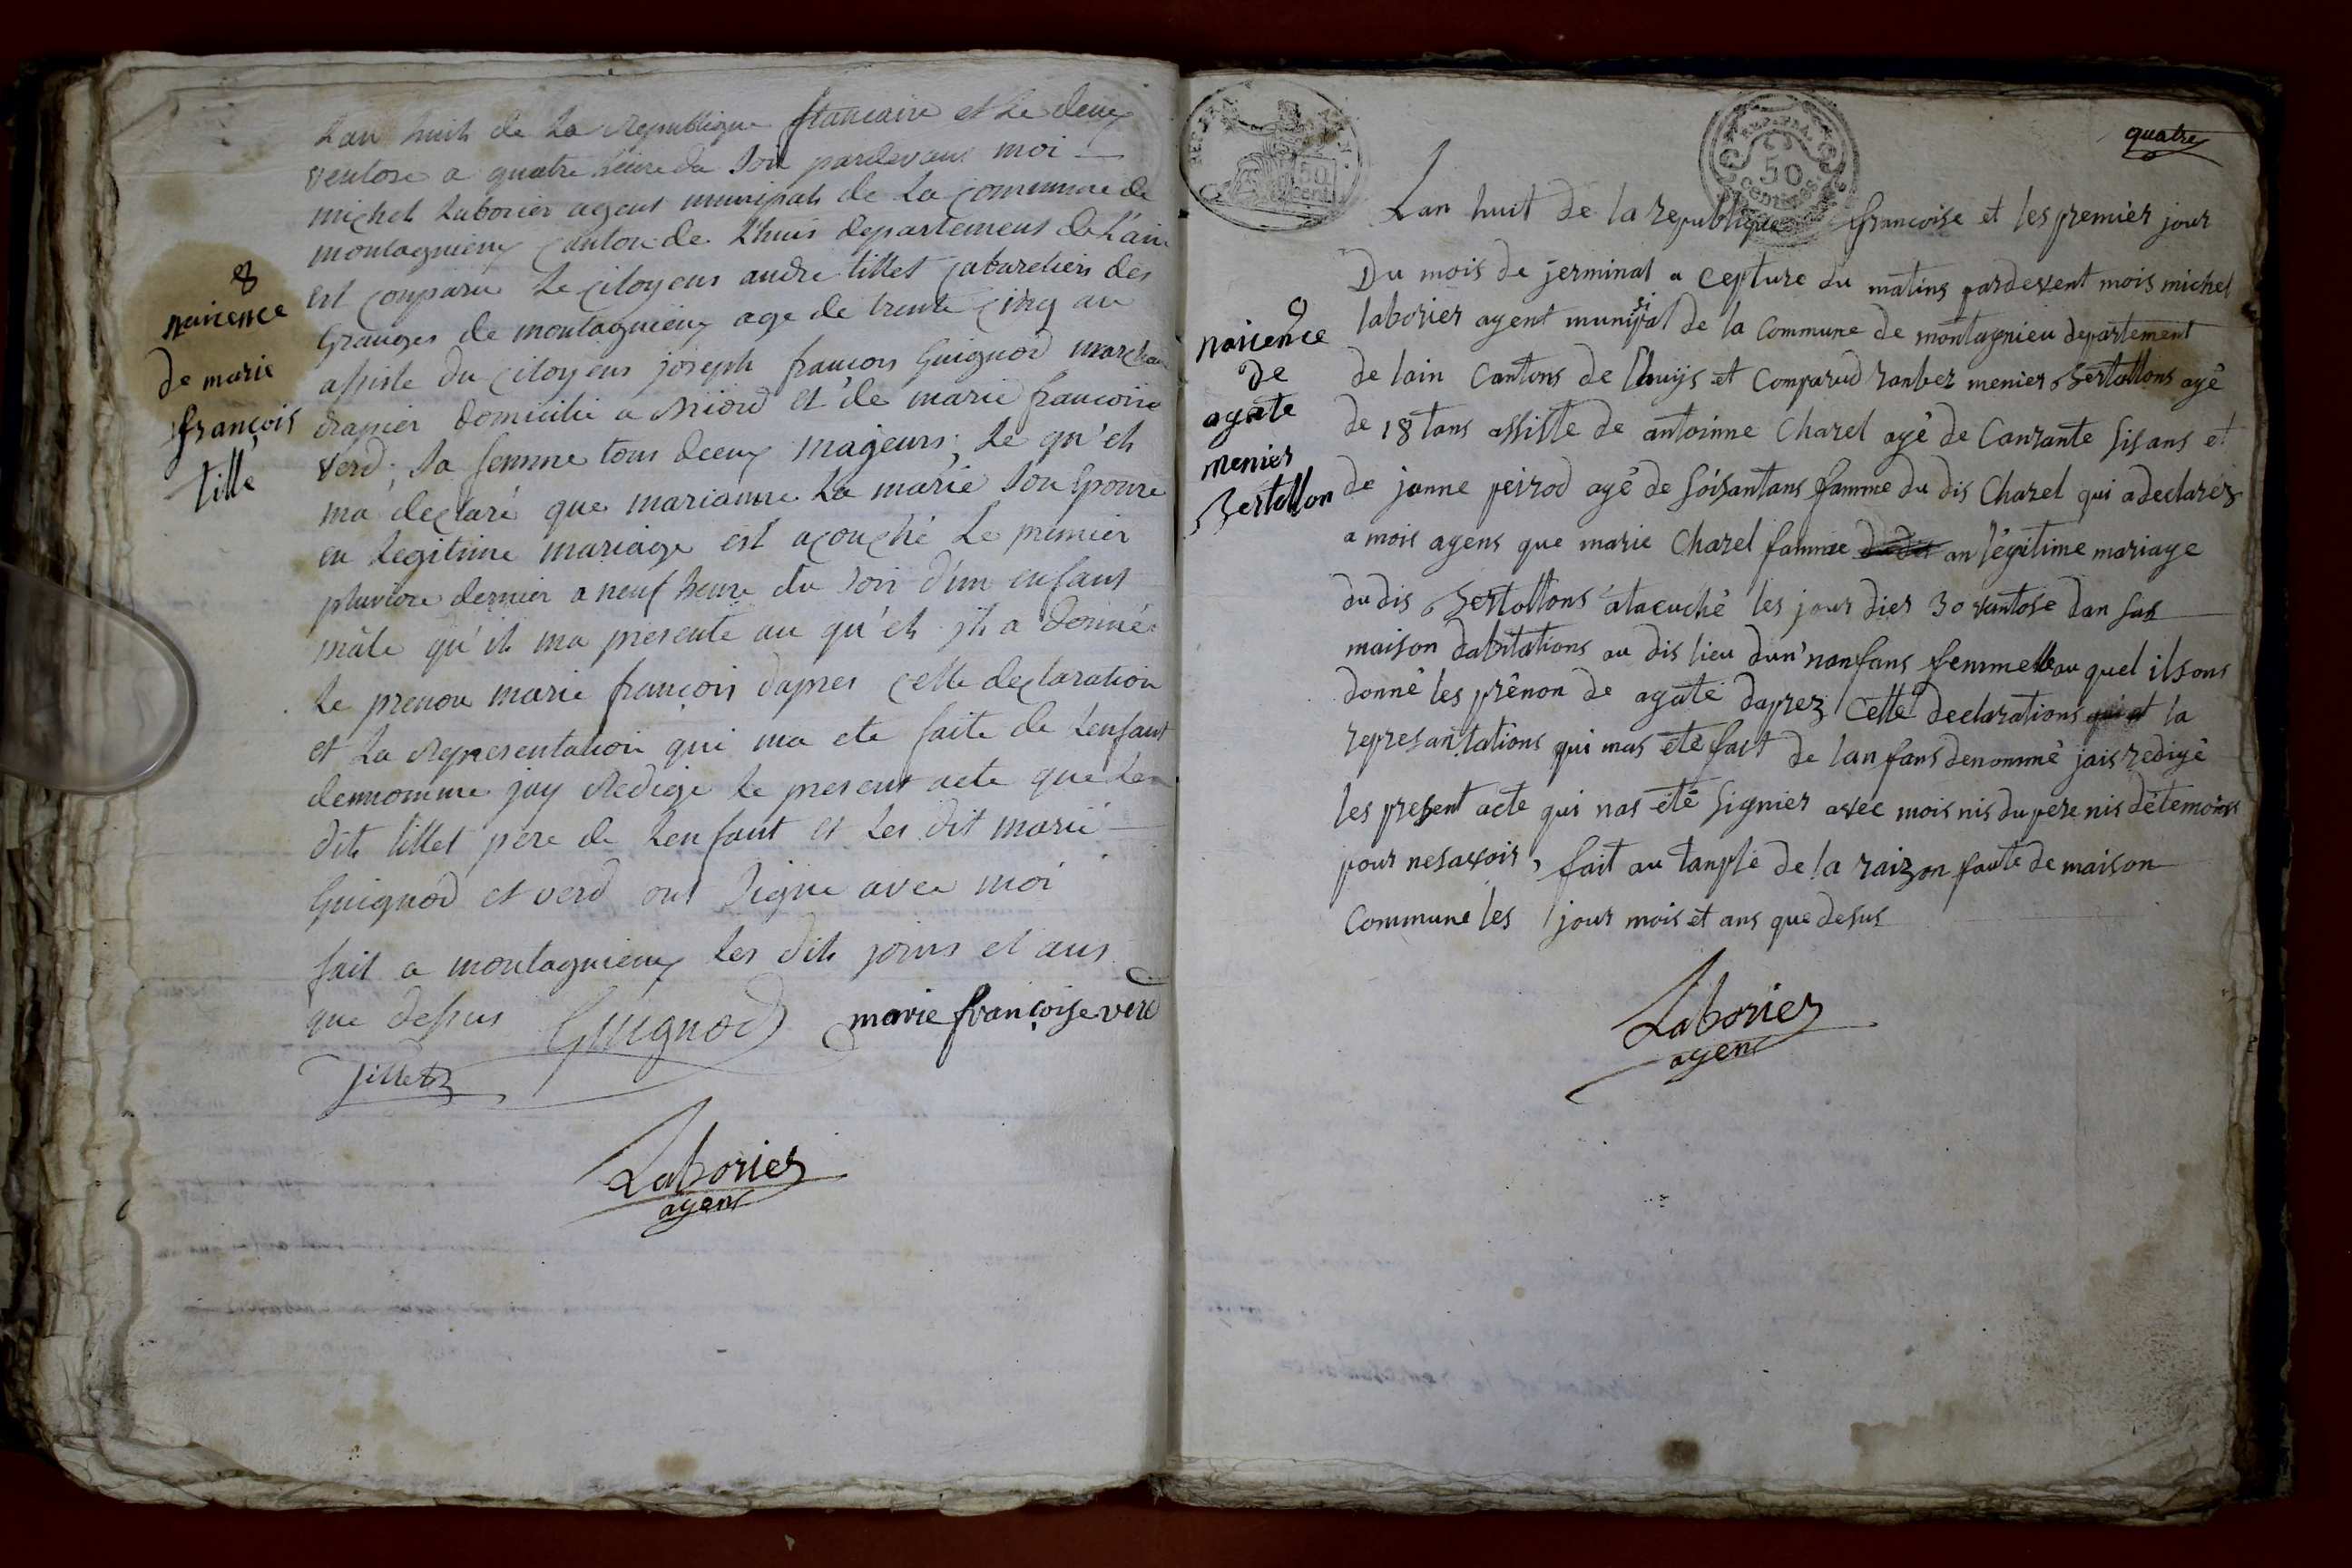 8
naicence
de marie
françois
tillé
Lan huit de La Republique francaire et Le deux
ventose a quatre heure du Soir pardevant moi
michel Laborier agent municipals de La Commune de
montagnieux canton de Lhuis departement de L'ain
est comparu Le Citoyens andre tillet Cabaretiers des
Granges de montagnieux age de trente Cinq an
assiste du Citoyens joseph francois Guignod marchan
drapier domicilie a Briord et de marie francoise
verd, Sa femme tous deux majeurs, Le qu'el
ma declaré que marianne La marie Son Epouse
en Legitime mariage est acouché Le premier
pluviose dernier a neuf heure du Soir d'un enfant
mâle qu'il ma presente au qu'el il a donné
Le prenon marie françois dapres Cette declaration
et La Representation qui ma ete faite de Lenfant
denomme jay Redige Le present acte que Le
dit tillet pere de Lenfant et Les dit marie
Guignod et verd ont Signe avec moi
fait a montagnieux Les dit jours et ans
que dessus Guignod marie françoise verd
Tillet
Laborier
agent
REP. FRA.
50
cent
REP. FRA.
50
CENTIMES
quatre
9
naicence
de
agate
menier
Bertollon
Lan huit de la republique francoise et les premier jour
Du mois de jerminal a cepture du matins pardevent mois michel
laborier agent munisipal de la Commune de montagnieu departement
de lain Cantons de Lhuijs et Comparud ranbez menier Bertollons agé
de 18 tans assiste de antoinne Charel agé de Caurante Sisans et
de janne peirod agé de soisantans famme du dis Charel qui adeclarés
a mois agens que marie Charel famme an légitime mariage
du dis Bertollons atacuché les jour dier 30 vantose dan sas
maison dabitations au dis lieu dun'nanfans femmelle au quel ilsons
donné les prênon de agate daprez Cette declarations la
represantations qui mas été fait de lanfans denommé jais redigé
les present acte qui nas été Signier avec mois nis du pere nis détemoins
pour nesavoir, fait au tanple de la raizon faute de maison
Commune les jour mois et ans que desus
Laborier
agent